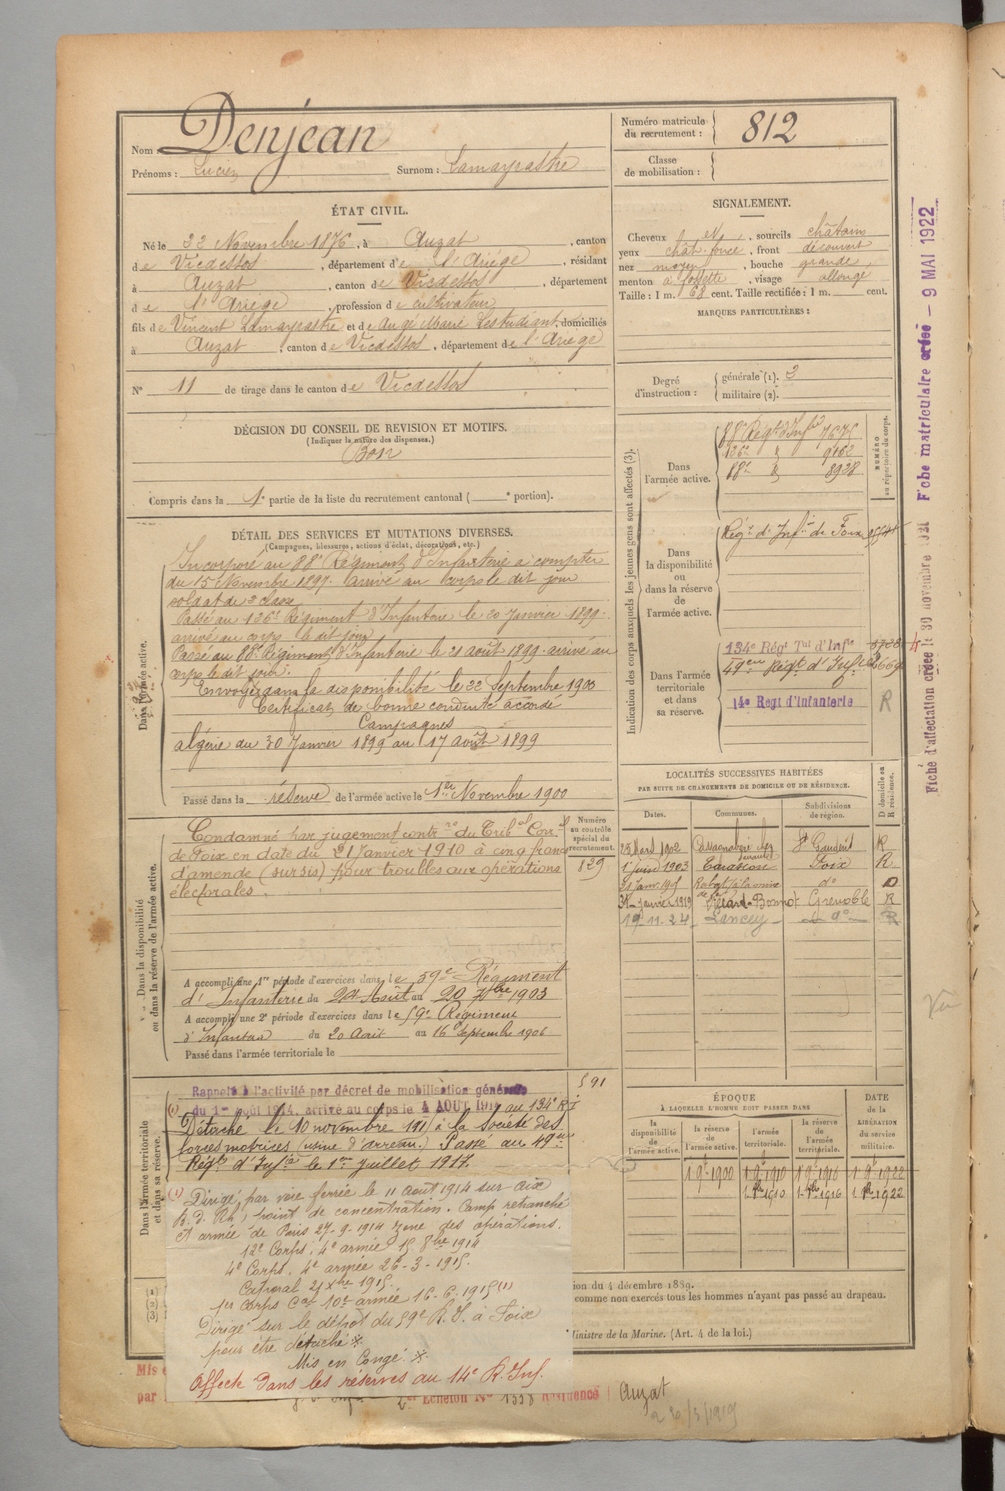 Nom : Denjean
Prénoms : Lucien Surnom : Lamayrastre
ÉTAT CIVIL.
Né le 22 Novembre 1876, à Auzat, canton
de Vicdessos, département de l'Ariège, résidant
à Auzat, canton de Vicdessos, département
de l'Ariège, profession de cultivateur
fils de Vincent Lamayrastre et de Augé Marie Lestudiant, domiciliés
à Auzat, canton de Vicdessos, département de l'Ariège
N° 11 de tirage dans le canton de Vicdessos
DÉCISION DU CONSEIL DE REVISION ET MOTIFS.
(Indiquer la nature des dispenses.)
Bon
Compris dans la 1e partie de la liste du recrutement cantonal ( e portion).
DÉTAIL DES SERVICES ET MUTATIONS DIVERSES.
(Campagnes, blessures, actions d'éclat, décorations, etc.)
Dans l'armée active.
Incorporé au 88e Régiment d'Infanterie à compter
du 15 Novembre 1897. Arrivé au Corps le dit jour
soldat de 2e classe
Passé au 126e Régiment d'Infanterie le 20 Janvier 1899
arrivé au corps le dit jour
Passé au 88e Régiment d'Infanterie le 21 août 1899 arrivé au
corps le dit jour.
Envoyé dans la disponibilité le 22 Septembre 1900
Certificat de bonne conduite accordé
Campagnes
Algérie du 30 Janvier 1899 au 17 Août 1899
Passé dans la réserve de l'armée active le 1er Novembre 1900
Dans la disponibilité
ou dans la réserve de l'armée active.
Condamné par jugement contre du Trib al Corel
de Foix en date du 21 Janvier 1910 à cinq francs
d'amende (sursis) pour troubles aux opérations
électorales.
Numéro
au contrôle
spécial du
recrutement.
829
A accompli une 1re période d'exercices dans le 59e Régiment
d'Infanterie du 24 Août au 20 7bre 1903
A accompli une 2e période d'exercices dans le 59e Régiment
d'Infanterie du 20 Août au 16 Septembre 1906
Passé dans l'armée territoriale le
591
Dans l'armée territoriale
et dans sa réserve.
Rappelé à l'activité par décret de mobilisation générale
du 1er Août 1914, arrivé au corps le 4 AOUT 1914 au 134e R I
Détaché le 10 novembre 191 à la Société des
forces motrices (usine d'arreau). Passé au 49eme
Régt d'Infie le 1er juillet 1917.
(1) Dirigé par voie ferrée le 11 août 1914 sur aix
point de concentration. Camp retranché
et armée de Paris 27-9-1914 zone des opérations.
12e Corps, 4e armée 15 8bre 1914
4e Corps. 4e armée 26-3-1915.
Caporal 21 Xbre 1915.
1er Corps Cal 10e armée 16-6-1915 (1)
Dirigé sur le dépôt du 59e R.I. à Foix
pour être détaché *
Mis en Congé. *
Affecté dans les réserves au 14e R. Inf.
Mis e
par
2e Echelon N° 1338 Résidence Auzat
Numéro matricule
du recrutement : 812
Classe
de mobilisation :
SIGNALEMENT.
Cheveux et, sourcils châtains
yeux chât. foncé, front découvert
nez moyen, bouche grande
menton à fossette, visage allongé
Taille : 1 m. 63 cent. Taille rectifiée : 1 m. cent.
MARQUES PARTICULIÈRES :
Degré
d'instruction :
générale (1). 3
militaire (2).
Indication des corps auxquels les jeunes gens sont affectés (3).
NUMÉRO
au répertoire du corps.
Dans
l'armée active.
88e Régt d'Infie 7675
126e " 9162
88e " 8928
Dans
la disponibilité
ou
dans la réserve
de
l'armée active.
Régt d'Infie de Foix
Dans l'armée
territoriale
et dans
sa réserve.
134e Régt Tal d'Infie
49eme Régt d'Infie
14e Regt d'Infanterie R
LOCALITÉS SUCCESSIVES HABITÉES
PAR SUITE DE CHANGEMENTS DE DOMICILE OU DE RÉSIDENCE.
D domicile ou
R résidence.
Dates. Communes. Subdivisions
de région.
23 Mars 1902 St Gaudens R
1er juin 1903 Tarascon Foix R
do D
31 janvier 1919 Grenoble R
19-11-24 Lancey do R
ÉPOQUE
À LAQUELLE L'HOMME DOIT PASSER DANS
DATE
de la
LIBÉRATION
du service
militaire.
la
disponibilité
de
l'armée active.
la réserve
de
l'armée active.
l'armée
territoriale.
la réserve
de
l'armée
territoriale.
1 9e 1900 1 9e 1910 1 9e 1916 1 9e 1922
1 8bre 1910 1 8bre 1916 1 8bre 1922
(1)
(2)
(3)
ion du 4 décembre 1889.
comme non exercés tous les hommes n'ayant pas passé au drapeau.
Ministre de la Marine. (Art. 4 de la loi.)
Fiche d'affectation créée le 30 novembre 1921 Fiche matriculaire créée – 9 MAI 1922